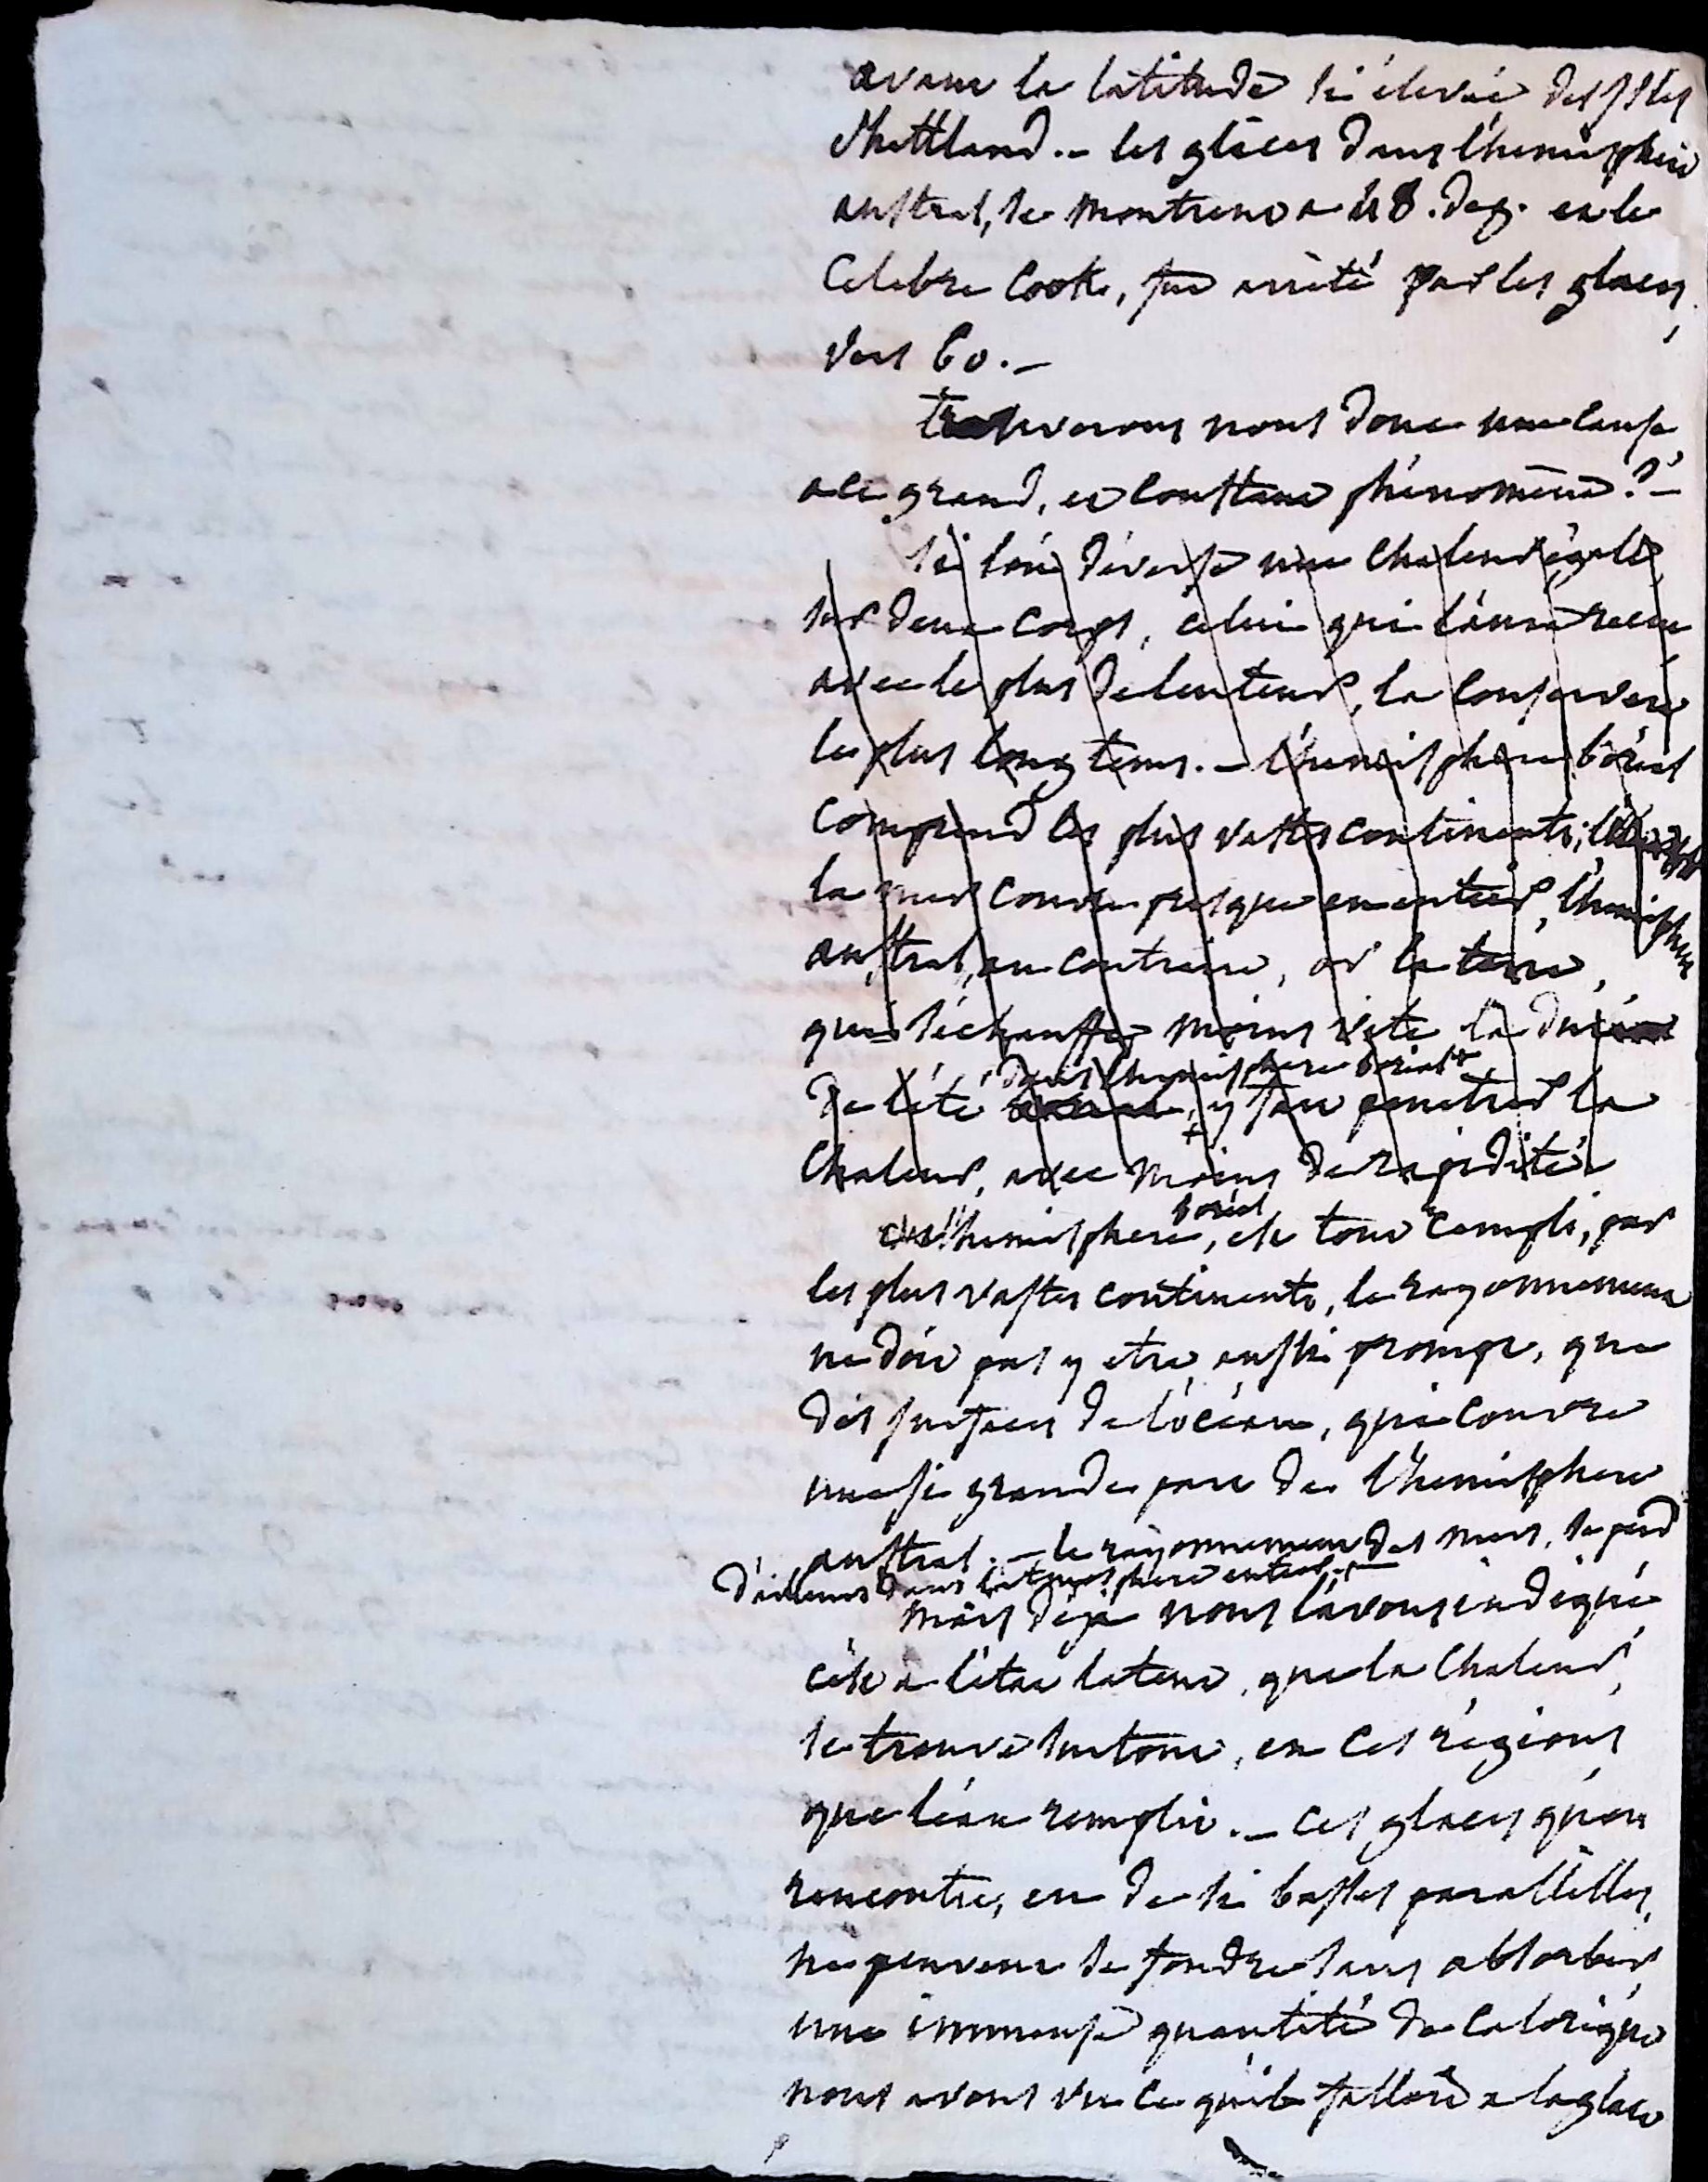 avant la latitude si élevée des isles
Shettland. – les glaces dans l'hemisphere
austral, se montrent a 48. deg. et le
Celebre Cook, fut arreté par les glaces,
vers 60. –
trouverons nous donc une cause
a ce grand, et constant phénomène? –
si l'on déverse une chaleur égale,
sur deux corps, celui qui l'aura recue
avec le plus de lenteur, la conservera
le plus longtems. – l'hemisphere boréal
comprend les plus vastes continents;
la mer couvre presque en entier, l'hemisphere
austral, au contraire, or la terre,
qui s'échauffe moins vite la durée
dans l'hemisphere boreal +
de l'été y fait penetrer la
chaleur, avec moins de rapidité
boréal
l'hemisphere, est tout rempli, par
les plus vastes continents, le rayonnement
ne doit pas y etre, aussi prompt, que
des surfaces de l'océan, qui couvre
une si grande part de l'hemisphere
austral. – le rayonnement des mers, se perd
d'ailleurs dans l'atmosphere entier. –
mais déja nous l'avons indiqué
c'est a l'état latent, que la chaleur,
se trouve surtout, en ces régions
que l'eau remplit. – ces glaces qu'on
rencontre, en de si basses parallèlles,
ne peuvent se fondre sans absorber
une immense quantité de calorique
nous avons vu ce qu'il falloit a la glace